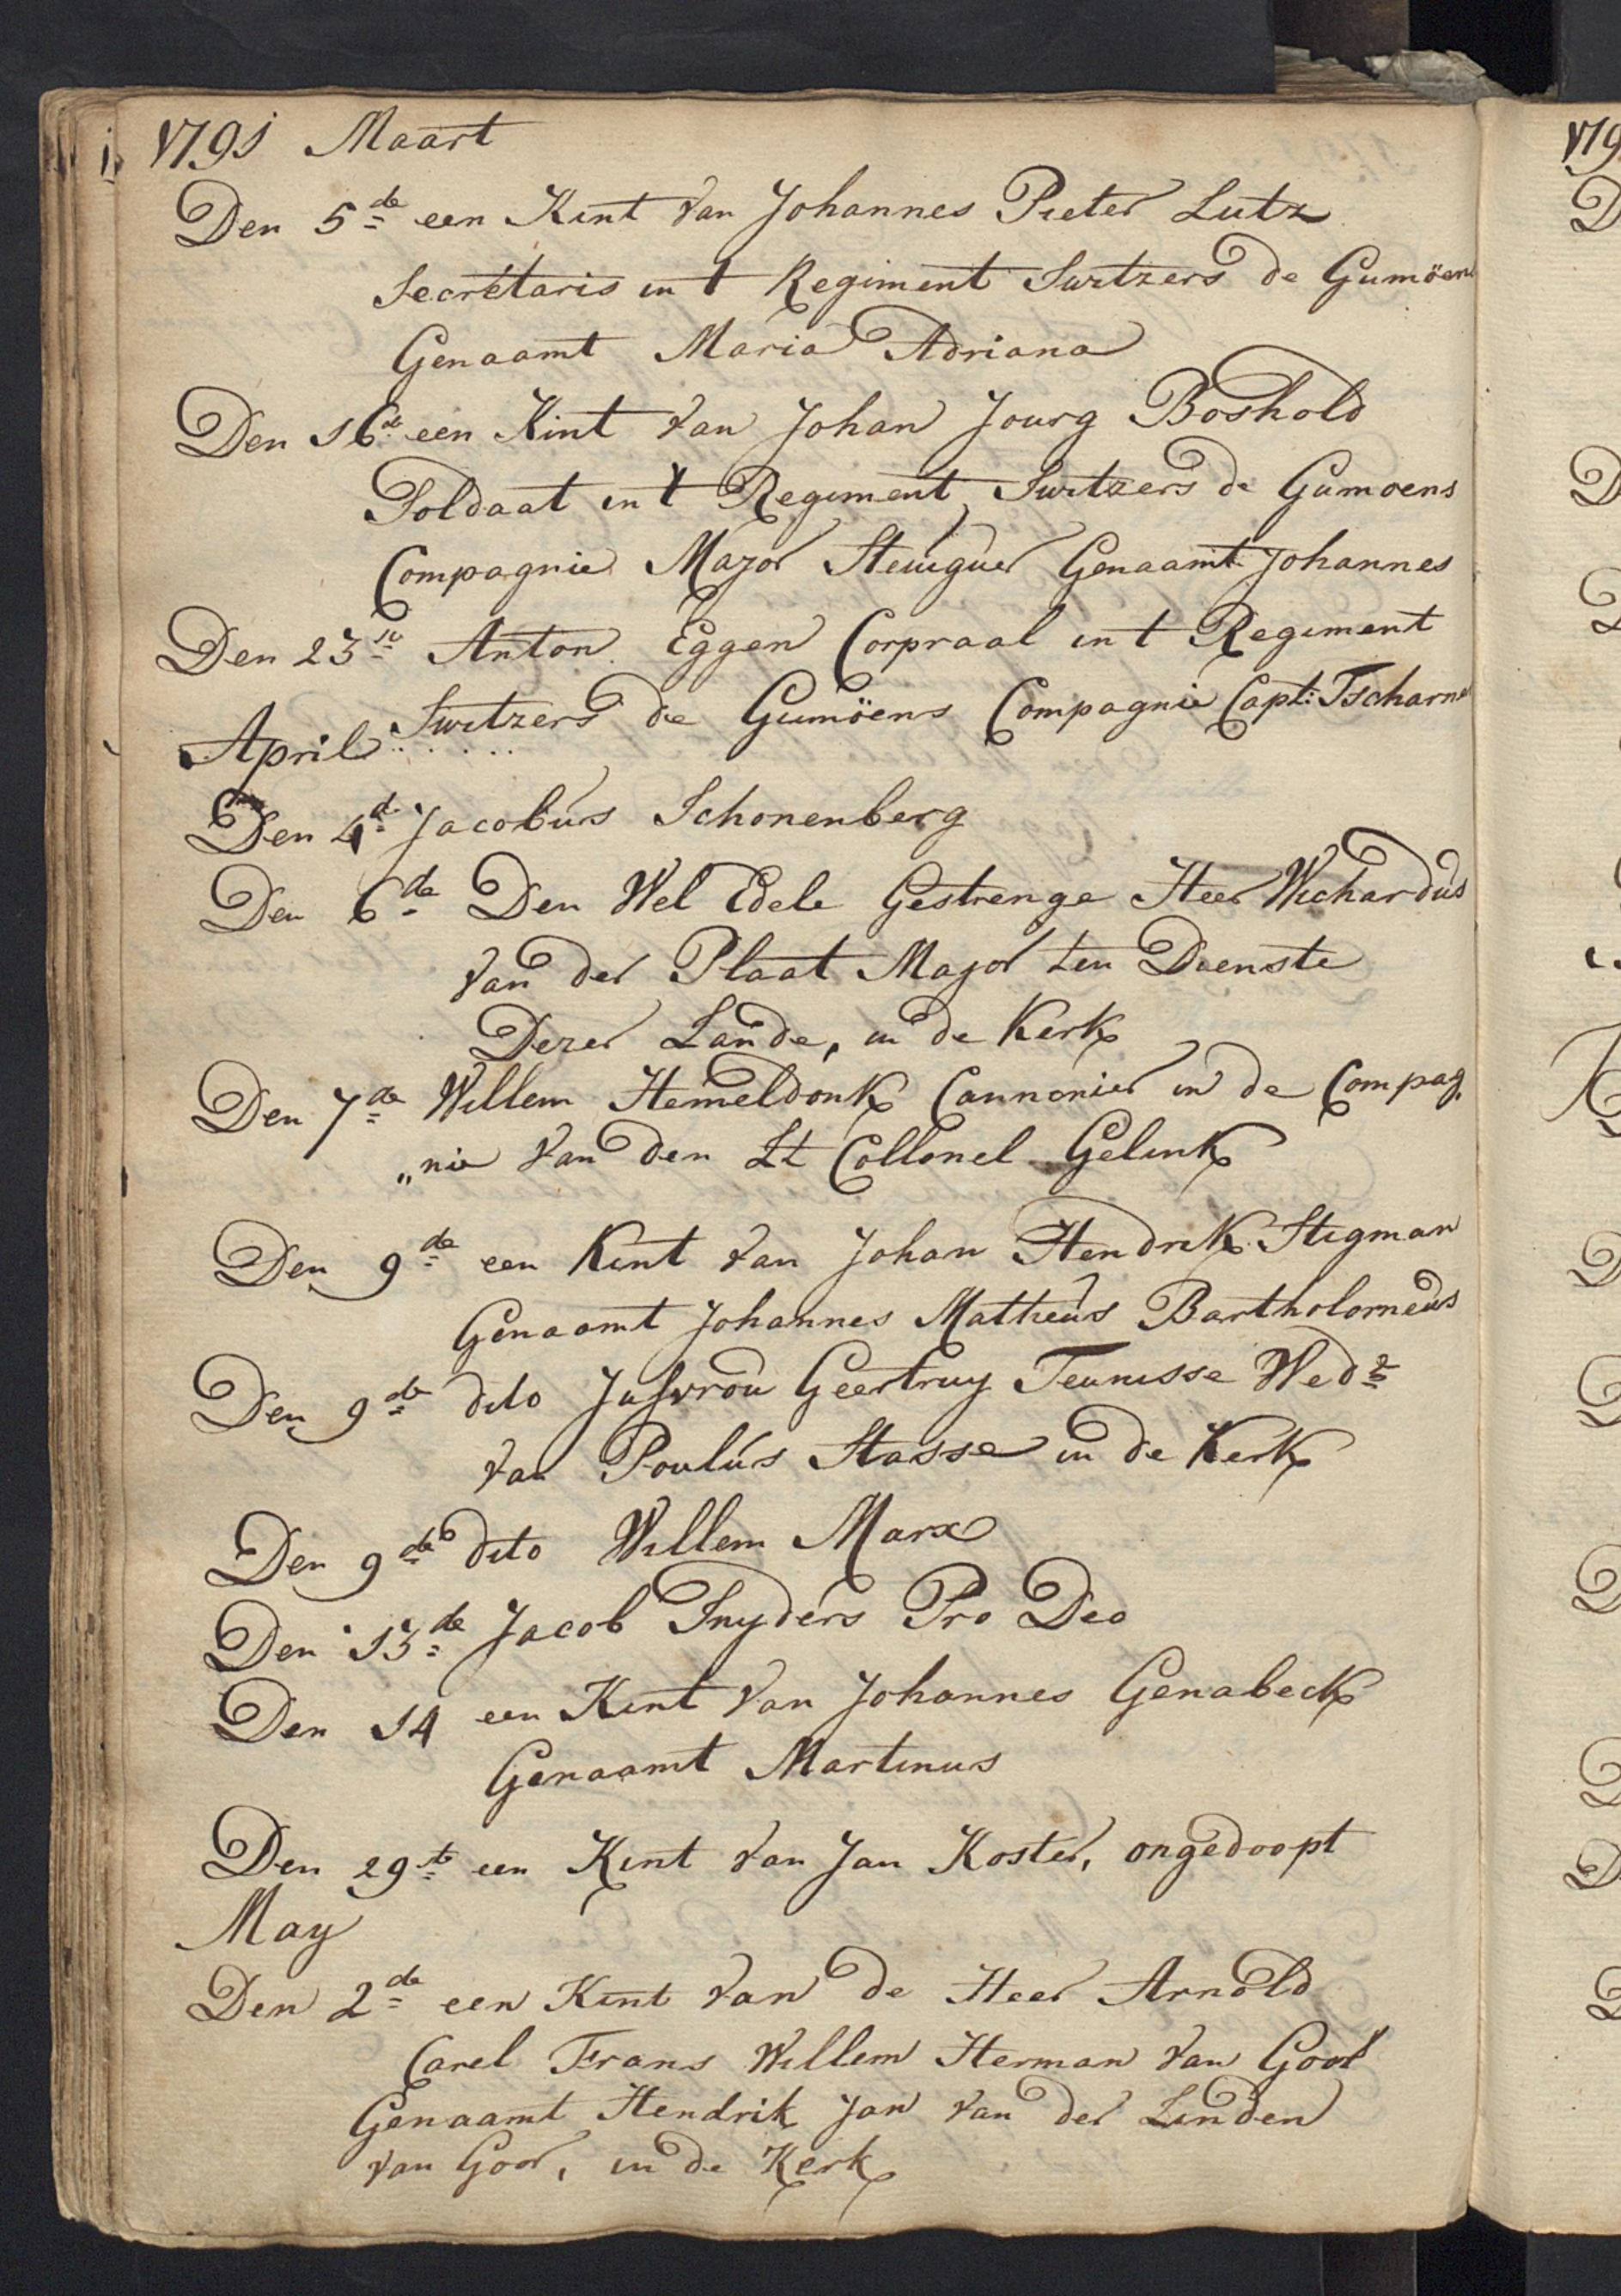 1791 Maart
Den 5de een Kint van Johannes Pieter Lutz
Secretaris in t Regiment Switzers de Gumöens
Genaamt Maria Adriana
Den 16de een Kint van Johan Jourg Boshold
Soldaat in t Regiment Switzers de Gumoens
Compagnie Major Steiguer Genaamt Johannes
Den 23ste Anton Eggen Corpraal in t Regiment
Switzers de Gumöens Compagnie Capt: Tscharner
April
Den 4de Jacobus Schonenberg
Den 6de Den Wel Edele Gestrenge Heer Wichardus
van der Plaat Major ten Dienste
Dezer Lande, in de Kerk
Den 7de Willem Hemeldonk Cannonier in de Compag
„nie van den Lt Collonel Gelink
Den 9de een Kint van Johan Hendrik Stigman
Genaamt Johannes Matheus Bartholomeus
Den 9de dito Jufvrou Geertruy Teunisse Wede
van Poulus Stasse in de Kerk
Den 9de dito Willem Marx
Den 13de Jacob Snyders Pro Deo
Den 14 een Kint van Johannes Genabeck
Genaamt Martinus
Den 29ste een Kint van Jan Koster, ongedoopt
May
Den 2de een Kint van de Heer Arnold
Carel Frans Willem Herman van Goor
Genaamt Hendrik Jan van der Linden
van Goor, in de Kerk